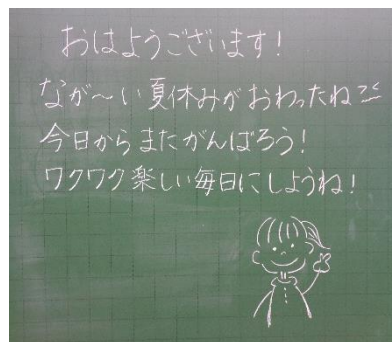 おはようございます！
なが〜い夏休みがおわったね
今日からまたがんばろう！
ワクワク楽しい毎日にしようね！